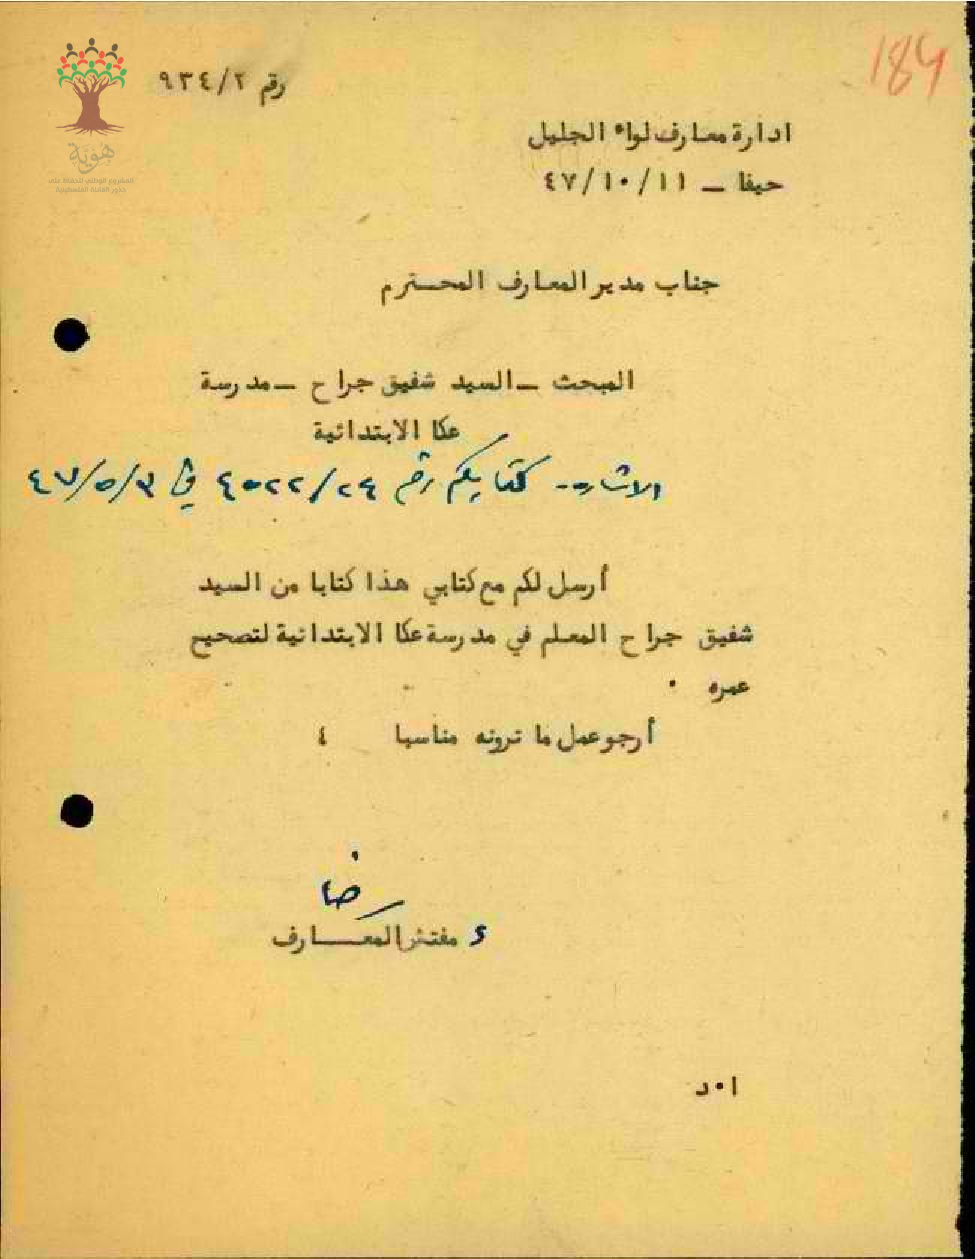 184
رقم ٩٣٤/٢
هوية
المشروع الوطني للحفاظ على
جذور العائلة الفلسطينية
ادارة معارف لواء الجليل
حيفا – ٤٧/١٠/١١
جناب مدير المعارف المحترم
المبحث – السيد شفيق جراح – مدرسة
عكا الابتدائية
الاشارة - كتابكم رقم ٤٥٢٢/٢٤ في ٤٧/٥/٣
أرسل لكم مع كتابي هذا كتابا من السيد
شفيق جراح المعلم في مدرسة عكا الابتدائية لتصحيح
عمره .
أرجو عمل ما ترونه مناسبا ٤
رضا
ع مفتش المعـــارف
ا٠د